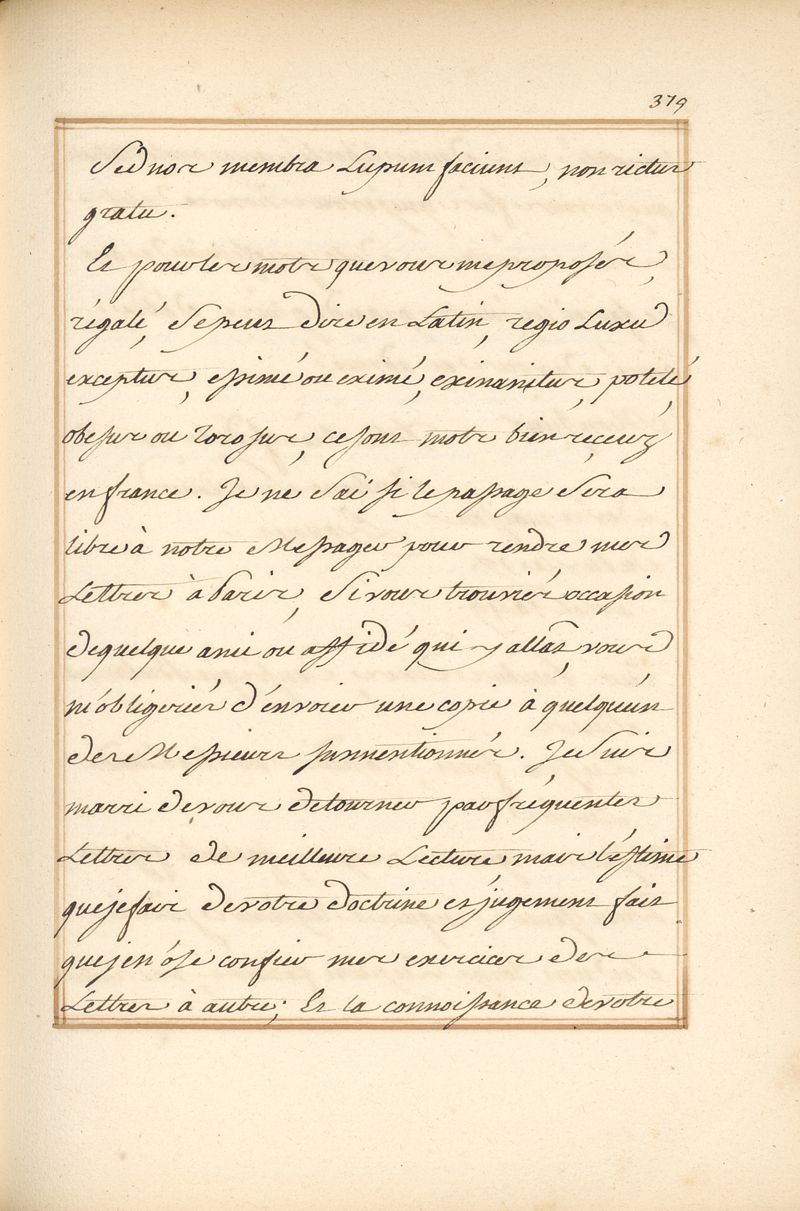 379
Sed nos membra Lupum faciunt, non rictus
gratu.
Et pour les mots que vous me proposés,
régalé, Se peut dire en Latin, regio Luxu
exceptus, essimé ou eximé, exinanitus, potelé
obesus ou Torosus, ce sont mots bien receuz
en france. Je ne Sai si le passage Sera
libre à notre Messager pour rendre mes
Lettres à Paris, Si vous trouviés occasion
de quelque ami ou affidé qui y allat, vous
m'obligeriés d'énvoier une copie à quelqu'un
des Messieurs susmentionnés. Je Suis
marri de vous detourner par fréquentes
Lettres de meilleure Lecture mais l'éstime
que je fais de votre doctrine et jugement fait
que je n'óse confier mes exercices des
Lettres à autre; Et la connoissance de votre